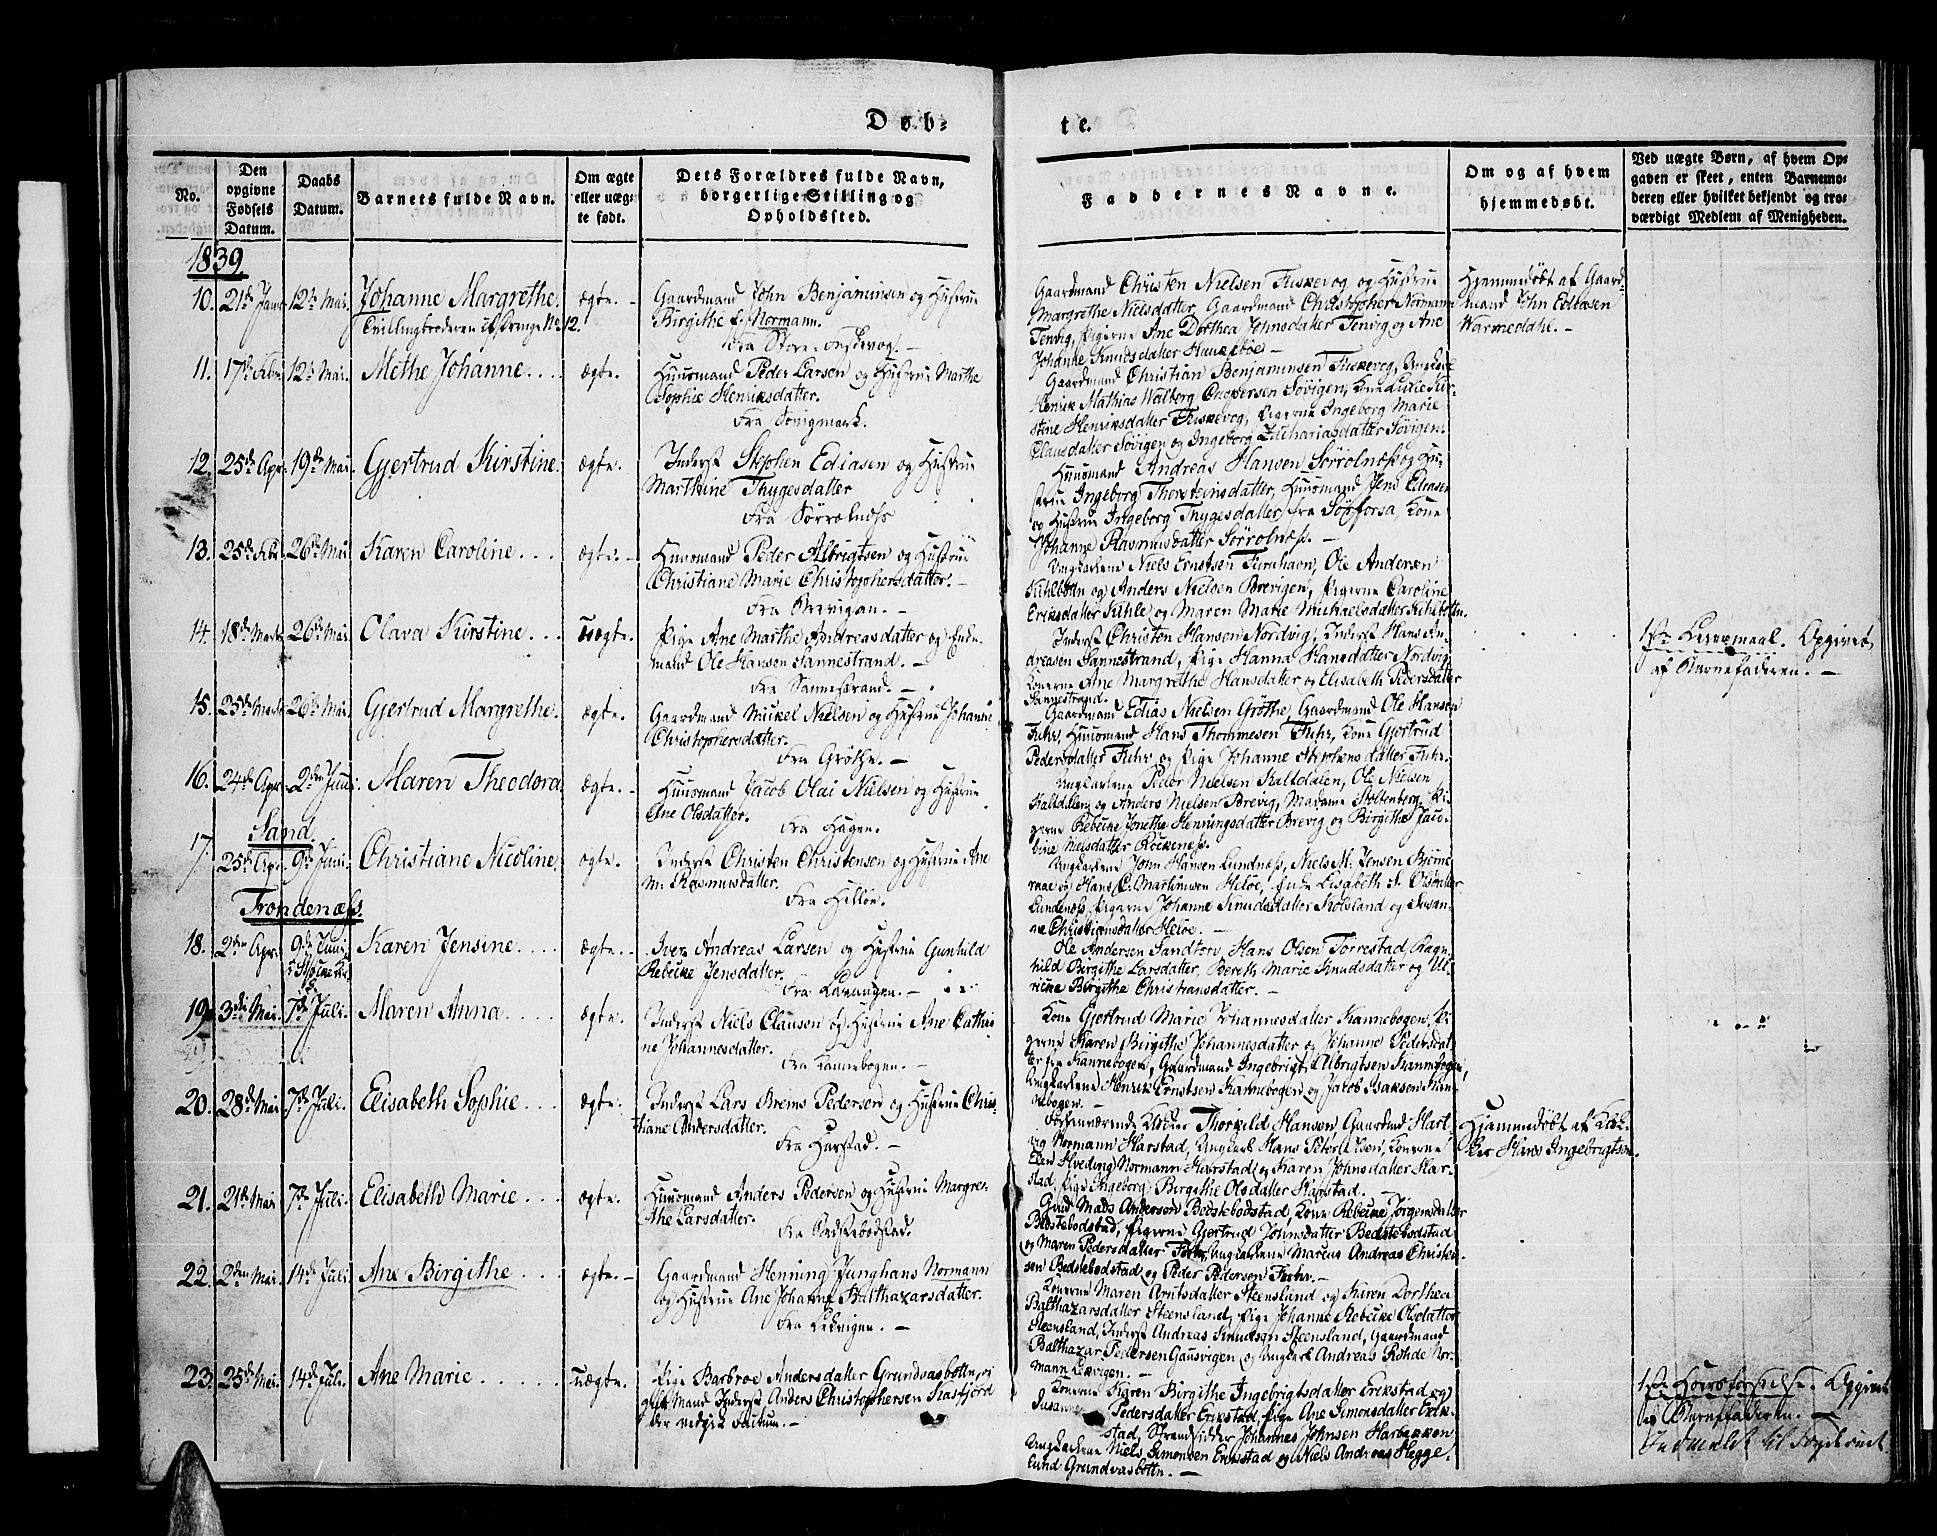 Døb-
te.
No.
Den opgivne Fødsels Datum.
Daabs Datum.
Barnets fulde Navn.
Om ægte eller uægte født.
Dets Forældres fulde Navn, borgerlige Stilling og Opholdssted.
Faddernes Navne.
Om og af hvem hjemmedøbt.
Ved uægte Børn, af hvem Opgaven er skeet, enten Barnemoderen eller hvilket bekjendt og troværdigt Medlem af Menigheden.
1839
10. 21de Janr 12te Mai. Johanne Margrethe. ægte. Gaardmand John Benjaminsen og Hustrue
Birgithe f. Normann.
Fra Store Fuskevog. –
Gaardmand Christen Nielsen Fuskevog og Hustrue
Margrethe Nielsdatter, Gaardmand Christopher Normann
Tenvig, Pigerne Ane Dorthea Johnsdatter Tenvig og Ane
Johanne Knudsdatter Haukebøe –
Hjemmedøbt af Gaard-
mand John Ediasen
Warmedahl. –
11. 17de Febr. 12te Mai. Methe Johanne.... ægte. Huusmand Peder Larsen og Hustrue Marthe
Sophie Henriksdatter.
Fra Søvigmark.
Gaardmand Christian Benjaminsen Fuskevog, Ungkarl
Henrik Mathias Walberg Caspersen Søvigen, Kone
stine Henriksdatter Fuskevog, Pigerne Ingeborg Marie
Clausdatter Søvigen og Ingeborg Zachariasdatter Søvigen.
12. 25de Apr. 19de Mai. Gjertrud Kirstine. ægte. Inderst Stephen Ediasen og Hustrue
Marthine Thygesdatter
Fra Sørrolnæss
Huusmand Andreas Hansen Sørrolnæss og Hu-
strue Ingeborg Thorsteinsdatter, Huusmand Jens Ediasen
og Hustrue Ingeborg Thygesdatter fra Sørforsa, Kone
Johanne Rasmusdatter Sørrolnæss. –
13. 25de Febr. 26de Mai. Karen Caroline.... ægte. – Huusmand Peder Albrigtsen og Hustrue
Christiane Marie Christophersdatter. –
Fra Brevigen. –
Ungkarlene Niels Ernstsen Furuhavn, Ole Andersen
Kihlbotn og Anders Nielsen Brevigen, Pigerne Caroline
Eriksdatter Kihle og Maren Marie Michaelsdatter Kihlbotn.
14. 18de Marts 26de Mai. Olava Kirstine... Uægte. Pige Ane Marthe Andreasdatter og Enke-
mand Ole Hansen Sannestrand. –
Fra Sannestrand. –
Inderst Christen Hansen Nordvig, Inderst Hans An-
dreasen Sannestrand, Pige Hanna Hansdatter Nordvig
Konerne Ane Margrethe Hansdatter og Elisabeth Pedersdatter
Sannestrand.
1ste Leiermaal. Opgivet
af Barnefaderen. –
15. 25de Marts 26de Mai. Gjertrud Margrethe. ægte. Gaardmand Mickel Nielsen og Hustrue Johanne
Christophersdatter.
Fra Grøthe. –
Gaardmand Edias Nielsen Grøthe, Gaardmand Ole Hansen
Fuhr, Huusmand Hans Thommesen Fuhr, Kone Gjertrud
Pedersdatter Fuhr og Pige Johanne Stephensdatter Fuhr.
16. 24de Apr. 2den Juni: Maren Theodora ægte. – Huusmand Jacob Olai Nielsen og Hustrue
Ane Olsdatter.
Fra Hagen.
Ungkarlene Peder Nielsen Kaltdalen, Ole Nielsen
Kaltdalen og Anders Nielsen Brevig, Madame Stoltenberg, Pi-
gerne Rebekke Jonethe Henningsdatter Brevig og Birgithe Jaco-
bine Nielsdatter Rockenæss.
Sand.
17. 25de Apr. 9de Juni. Christiane Nicoline. ægte. Inderst Christen Christensen og Hustrue Ane
M. Rasmusdatter.
Fra Helløe.
Ungkarlene John Hansen Lundnæss, Niels M. Jensen Bjørne-
raae og Hans C. Martinusen Heløe, Enke Lisabeth S. Olsdatter
Lundenæss, Pigerne Johanne Knudsdatter Kolsland og Susan-
ne Christiansdatter Heløe. –
Trondenæss.
18. 2den Apr. 9de Juni Karen Jensine.... ægte. – Iver Andreas Larsen og Hustrue Gunhild
Rebekke Jensdatter.
Fra Lavangen. –
Ole Andersen Sandtorv, Hans Olsen Torrestad, Ragn-
hild Birgithe Larsdatter, Bereth Marie Knudsdatter og Ul-
rikke Birgithe Christiansdatter. –
19. 3die Mai. 7de Juli. Maren Anna..... ægte. Inderst Niels Clausen og Hustrue Ane Cathri-
ne Johannesdatter.
Fra Kannebogen. –
Kone Gjertrud Marie Johannesdatter Kannebogen, Pi-
gerne Karen Birgithe Johannesdatter og Johanne Pedersdat-
ter fra Kannebogen, Gaardmand Ingebrigt Albrigtsen Kannebogen,
Ungkarlene Henrik Ernstsen Kannebogen og Jacob Isaksen Kan-
nebogen. –
20. 28de Mai 7de Juli. Elisabeth Sophie... ægte. Inderst Lars Brems Pedersen og Hustrue Chris-
tiane Andersdatter.
Fra Harstad. –
Forhenværende Klokker Thorkild Hansen, Gaardmd Hart-
vig Normann Harstad, Ungkarl Hans Peter Olsen, Konerne
Elen Hveding Normann Harstad og Karen Johnsdatter Har-
stad, Pige Ingeborg Birgithe Olsdatter Harstad. –
Hjemmedøbt af Klok-
ker Hans Ingebrigtsen.
21. 21de Mai 7de Juli. Elisabeth Marie... ægte. Huusmand Anders Pedersen og Hustrue Margre-
the Larsdatter.
Fra Bedstebodstad.
Gmd Mads Andersen Bedstebodstad, Kone Rebekke Jørgensdatter
Bedstebodstad, Pigerne Gjertrud Johnsdatter Bedstebodstad
og Maren Pedersdatter Fuhr, Ungkarlene Marcus Andreas Christen-
sen Bedstebodstad og Peder Pedersen Fuhr. –
22. 2den Mai. 14de Juli. Ane Birgithe.... ægte. – Gaardmand Henning Junghans Normann
og Hustrue Ane Johanne Balthazarsdatter.
Fra Lekvigen. –
Konerne Maren Arntsdatter Steensland og Karen Dorthea
Balthazarsdatter Steensland, Pige Johanne Rebekke Olsdatter
Steensland, Inderst Andreas Knudsen Steensland, Gaardmand
Balthazar Pedersen Gausvigen og Ungkarl Andreas Rohde Nor-
mann Løvigen. –
23. 25de Mai. 14de Juli. Ane Marie...... uægte. Pige Barbroe Andersdatter Grundvasbotten, og
gift Mand Inderst Anders Christophersen Kastfjord
Konerne Karen Birgithe Ingebrigtsdatter Erikstad og
Susanne Pedersdatter Erikstad, Pige Ane Simonsdatter Erik-
stad, Strandsidder Johannes Johnsen Harbakken
Ungkarlene Niels Simonsen Erikstad og Niels Andreas Hegge-
lund Grundvasbottn. –
1ste Horsforseelse. Opgivet
af Barnefaderen. –
Indmeldt til Fogderiet